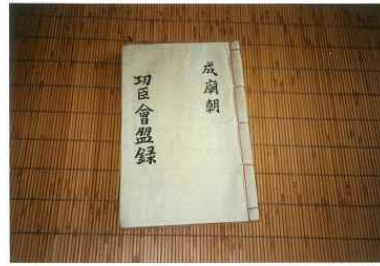 成廟朝
功臣會盟錄